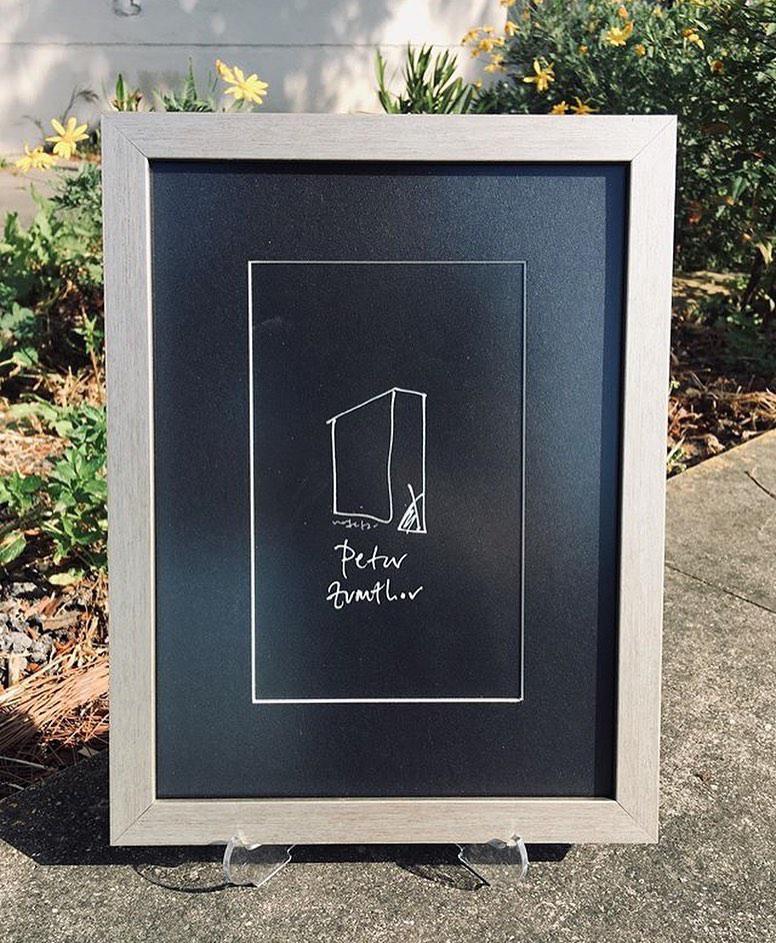 Peter
Zumthor